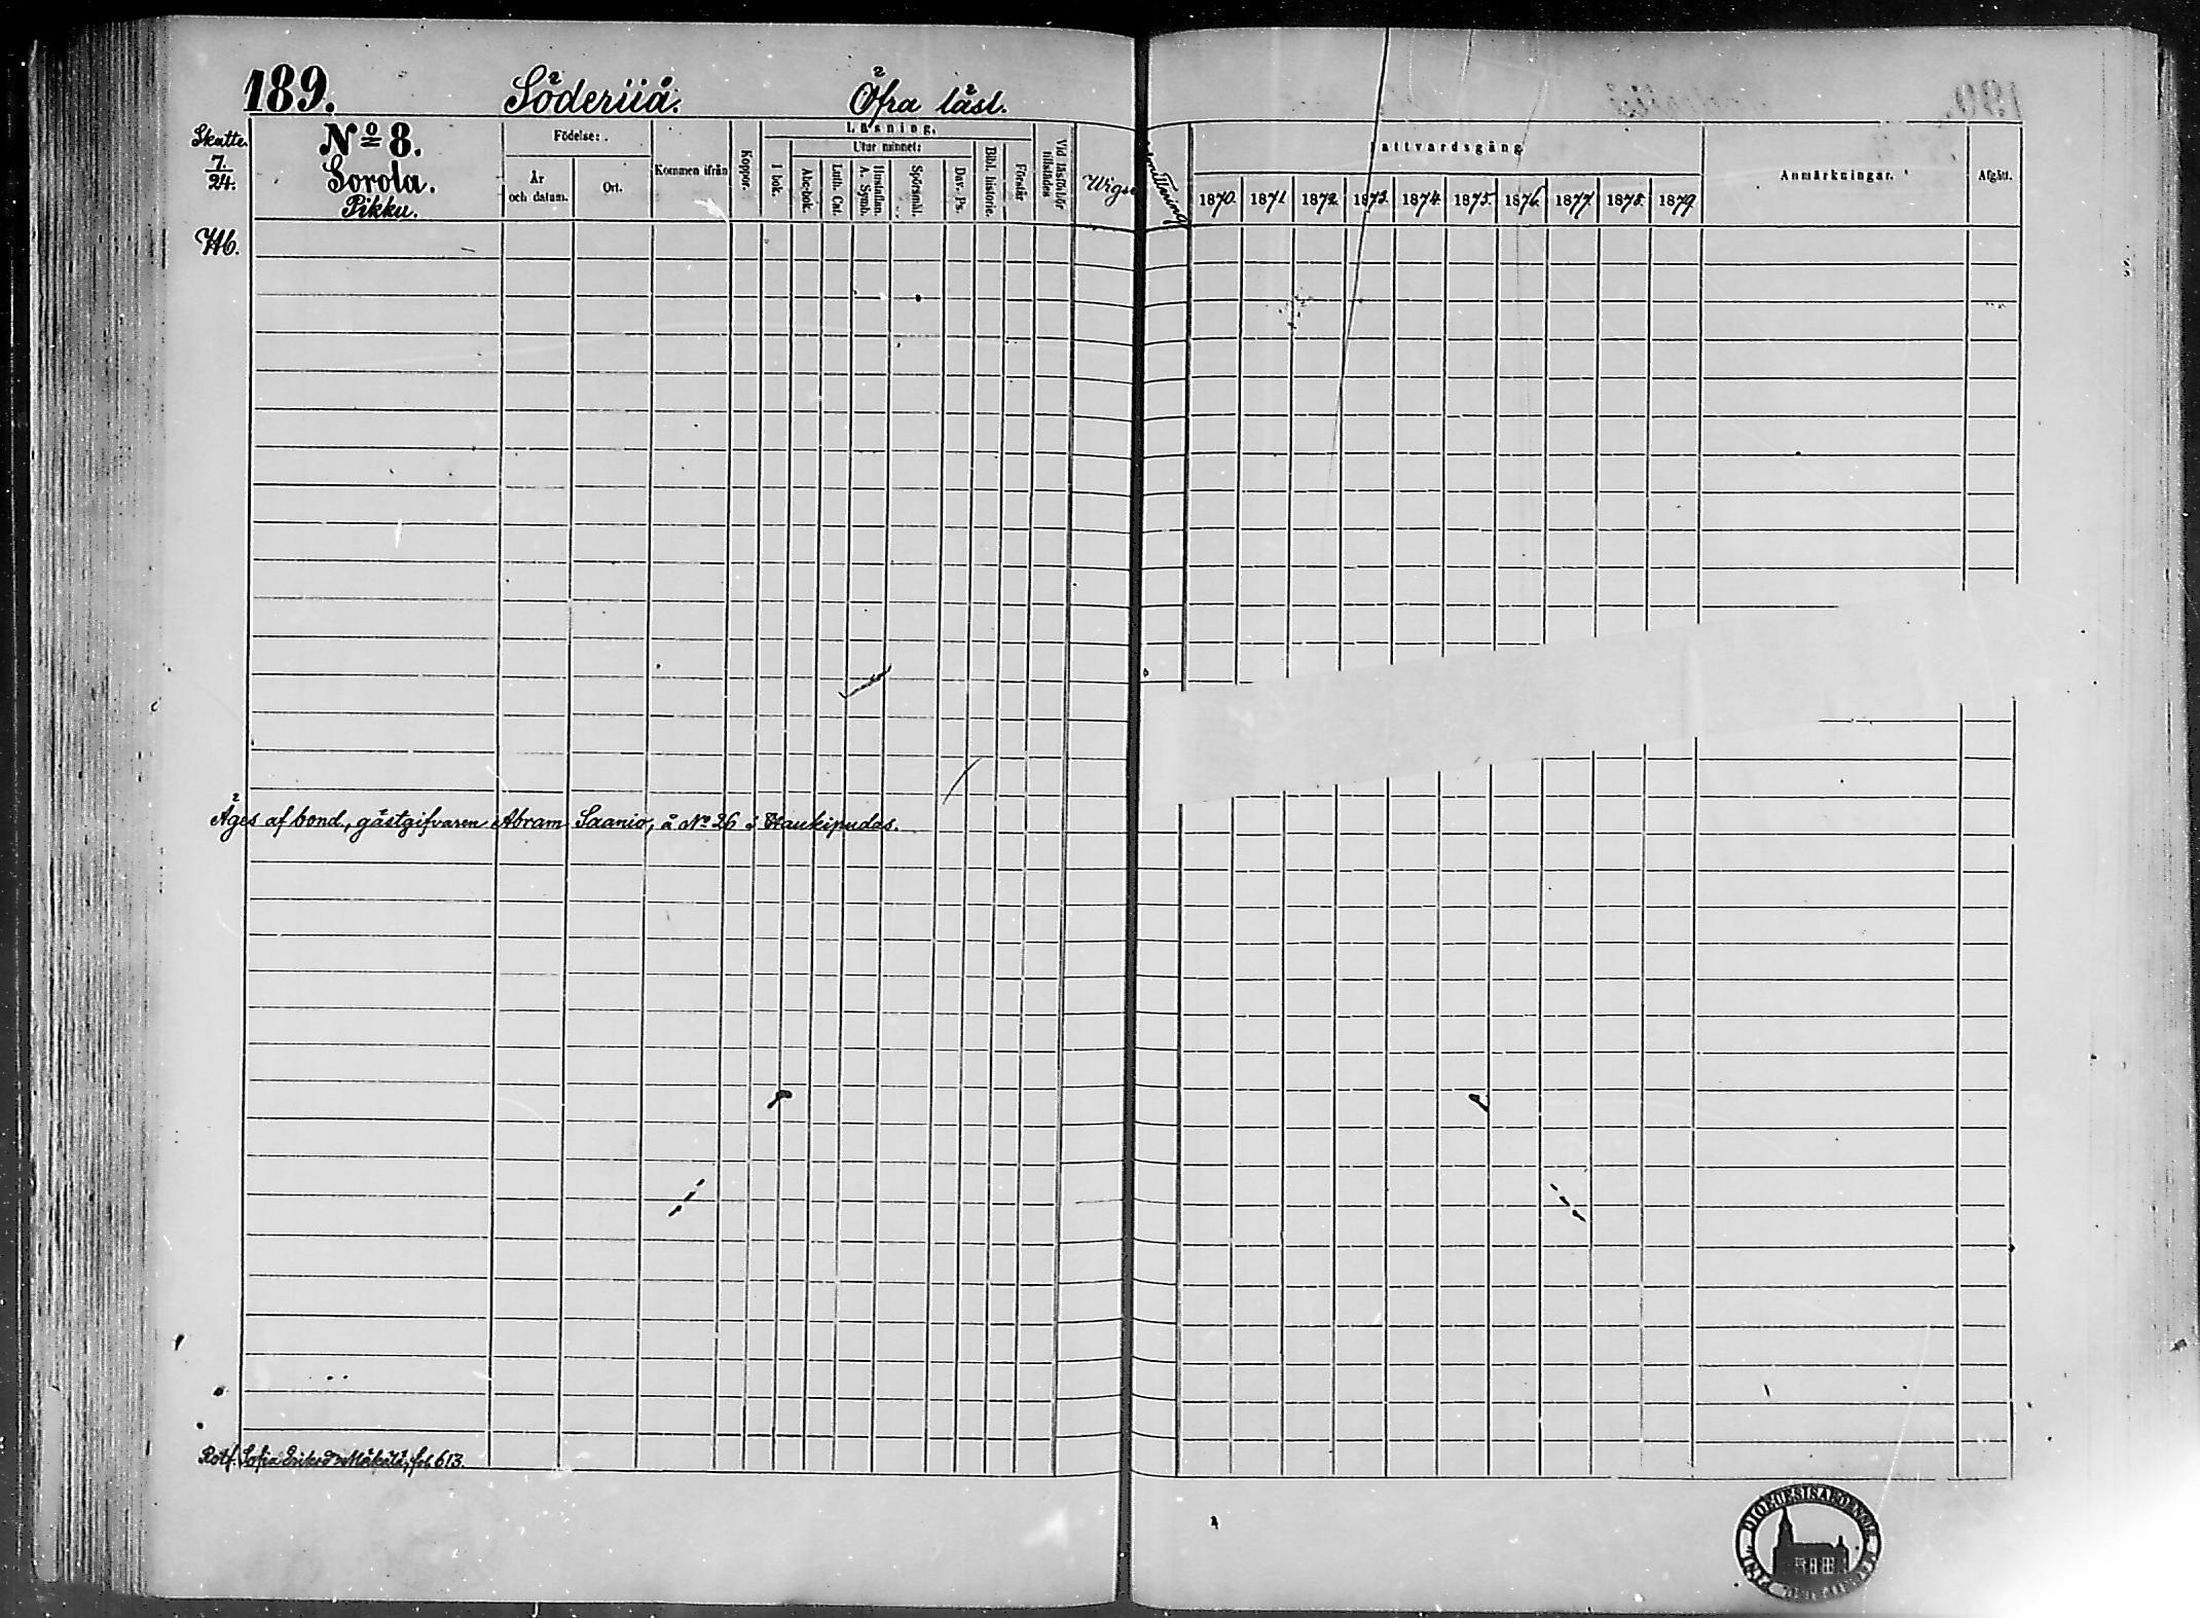 189. Söderiiå. Öfra läsl.
Skatte.
7.
24.
No 8.
Sorola.
Pikku.
Födelse:
År
och datum.
Ort.
Kommen ifrån
Koppor.
Läsning.
I bok.
Utur minnet:
Abc-bok.
Luth. Cat.
Hustaflan.
A. Symb.
Spörsmål.
Dav. Ps.
Bibl. historie.
Förstår
Vid läsförhör
tillstädes
Nattvardsgång
1870. 1871. 1872. 1873. 1874. 1875. 1876. 1877. 1878. 1879.
Anmärkningar.
Afgått.
Äges af bond., gästgifvaren Abram Saanio, å No 26 i Haukipudas.
Sofia Mäkelä, fol. 613.